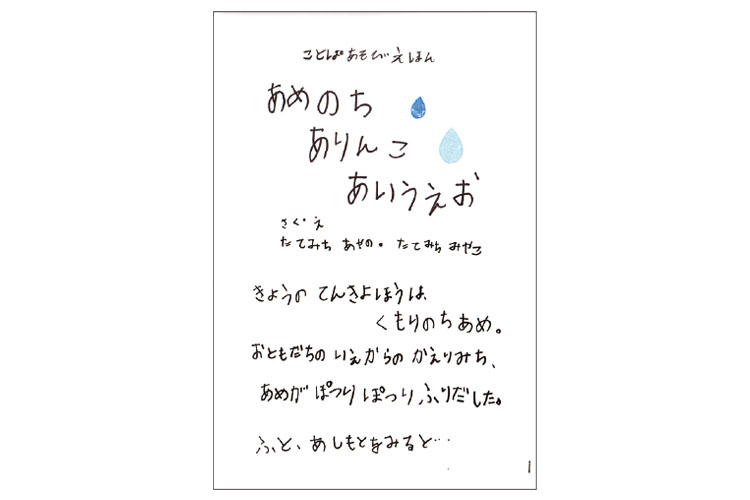 ことばあそびえほん
あめのち
ありんこ
あいうえお
さく・え
たてみち あやの。たてみち みやこ
きょうの てんきよほうは、
くもりのちあめ。
おともだちの いえからの かえりみち、
あめが ぽつり ぽつり ふりだした。
ふと、あしもとをみると…
1